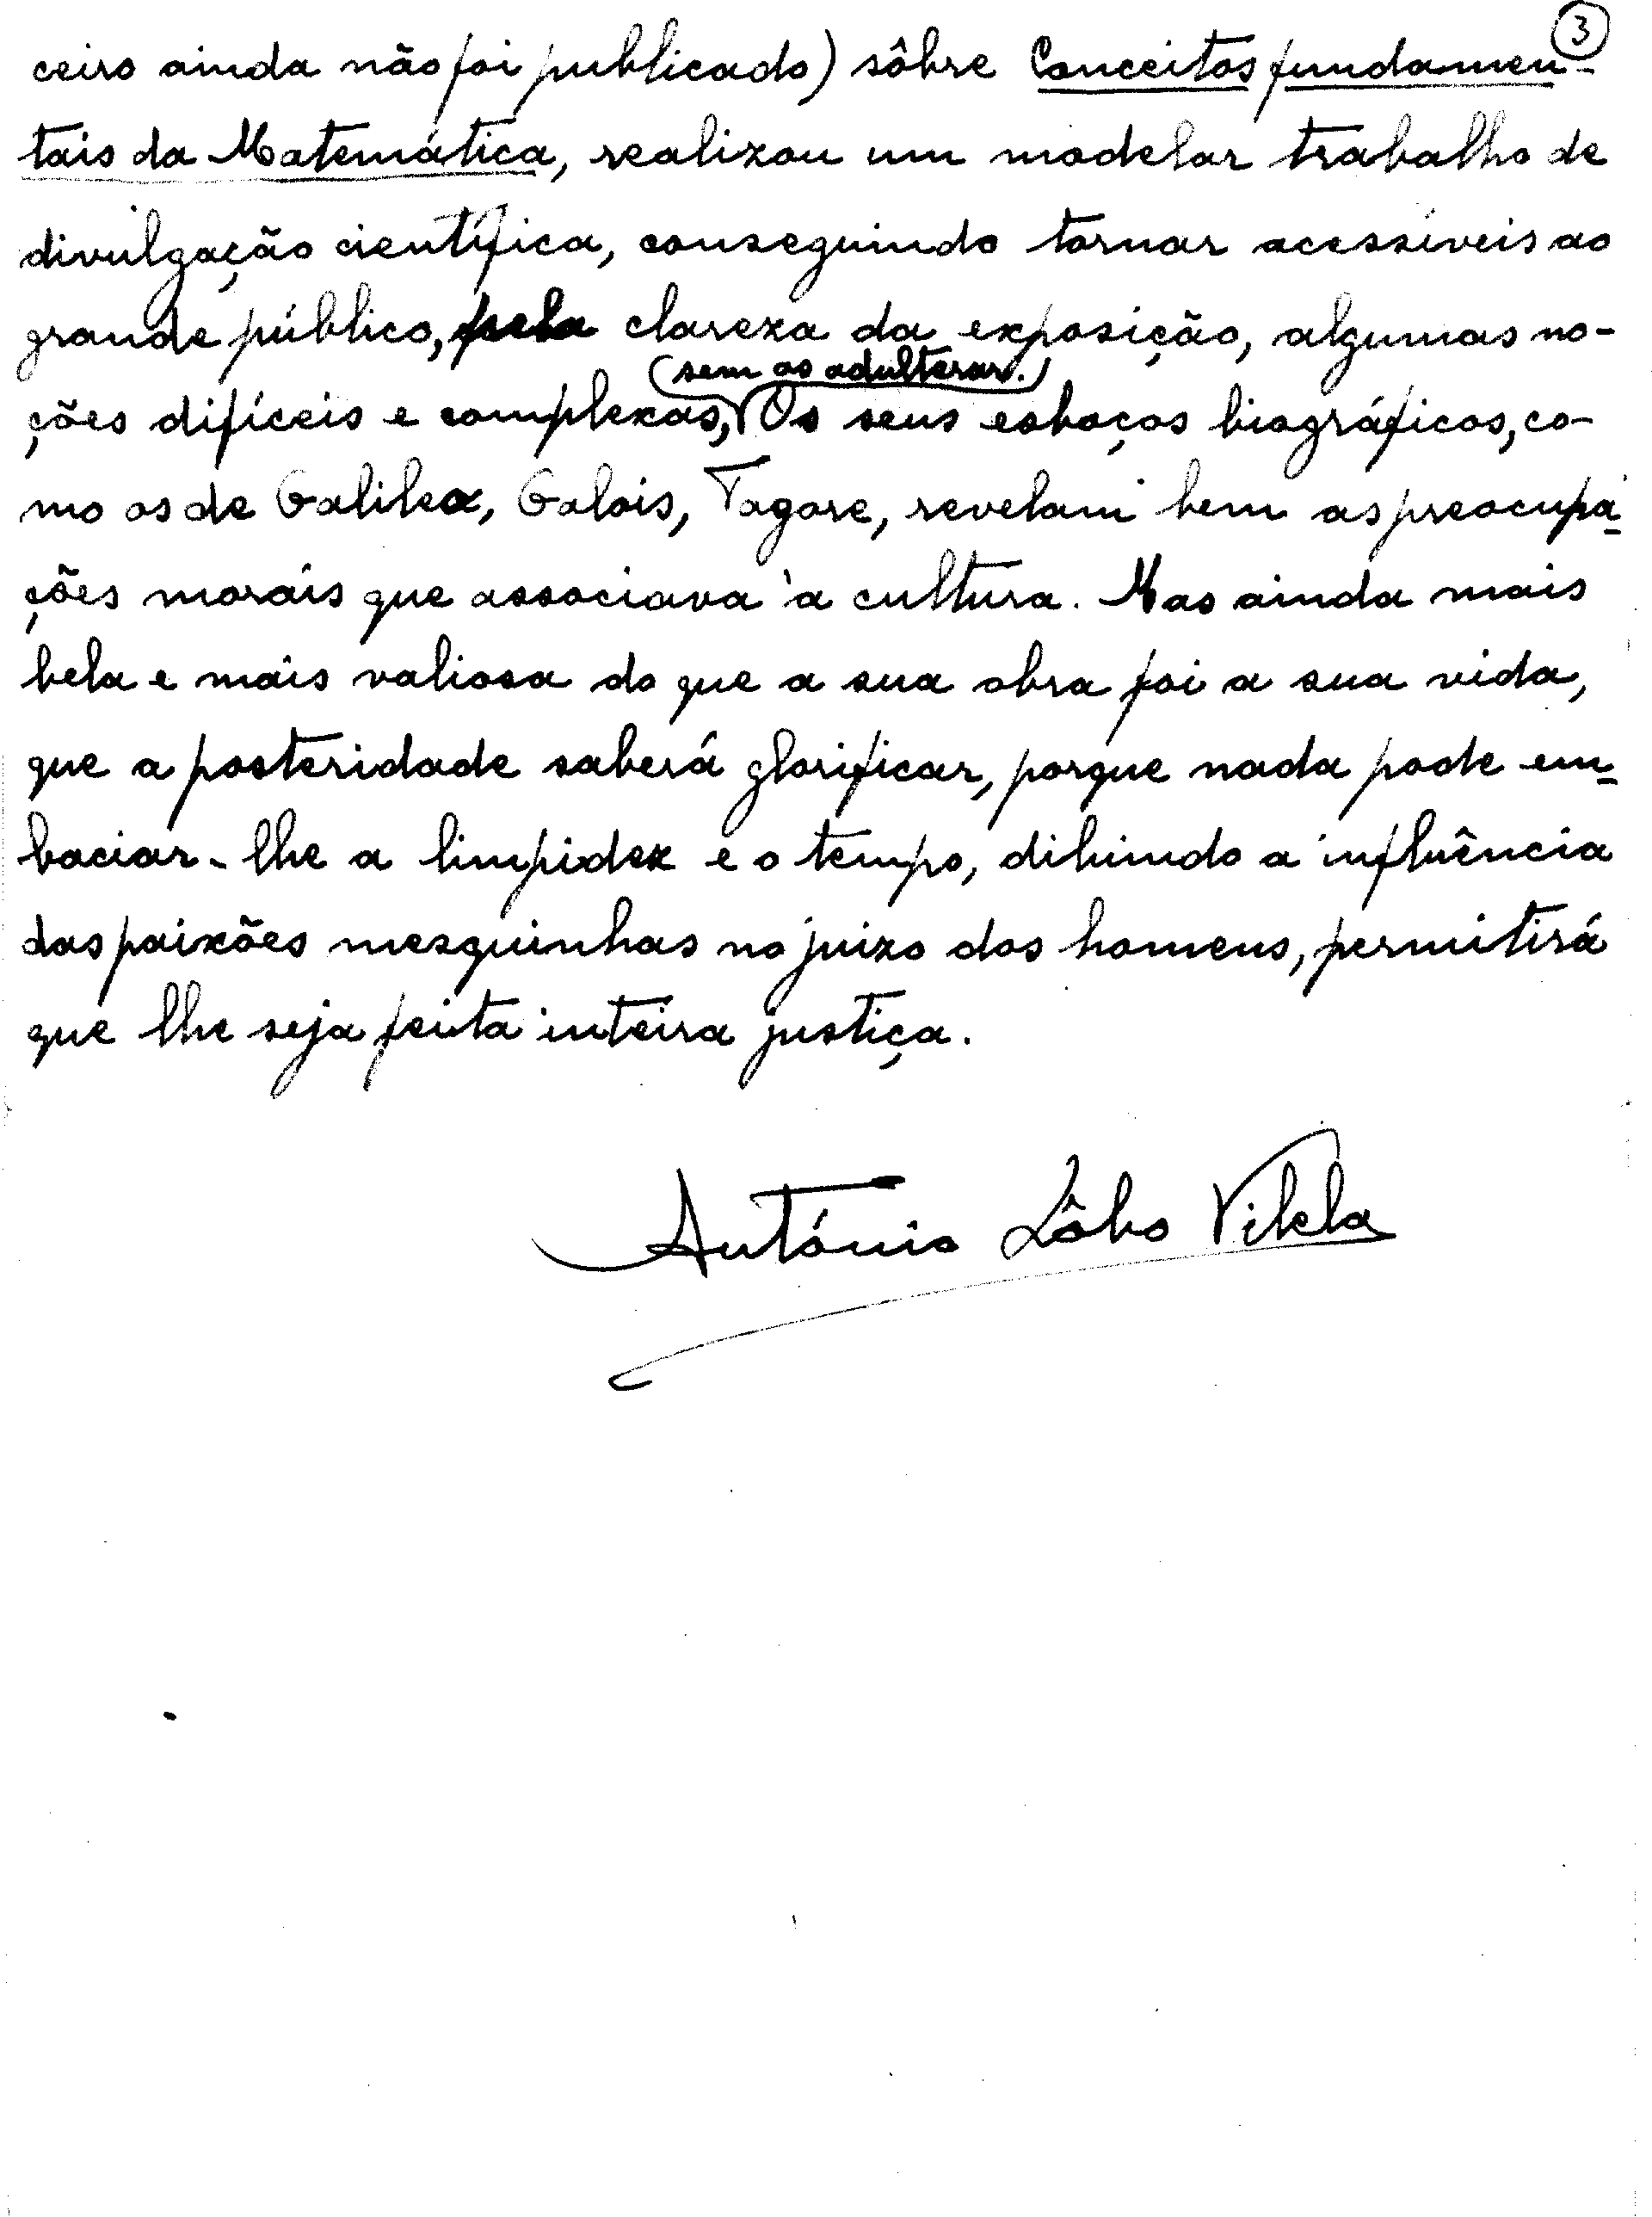 3
ceiro ainda não foi publicado) sôbre Conceitos fundamen-
tais da Matemática, realizou um modelar trabalho de
divulgação científica, conseguindo tornar acessíveis ao
grande público, pela clareza da exposição, algumas no-
sem as adulterar.
ções difíceis e complexas, Os seus esboços biográficos, co-
mo os de Galileo, Galois, Tagore, revelam bem as preocupa-
ções morais que associava à cultura. Mas ainda mais
bela e mais valiosa do que a sua obra foi a sua vida,
que a posteridade saberá glorificar, porque nada pode em-
baciar-lhe a limpidez e o tempo, diluindo a influência
das paixões mesquinhas no juizo dos homens, permitirá
que lhe seja feita inteira justiça.
António Lôbo Vilela